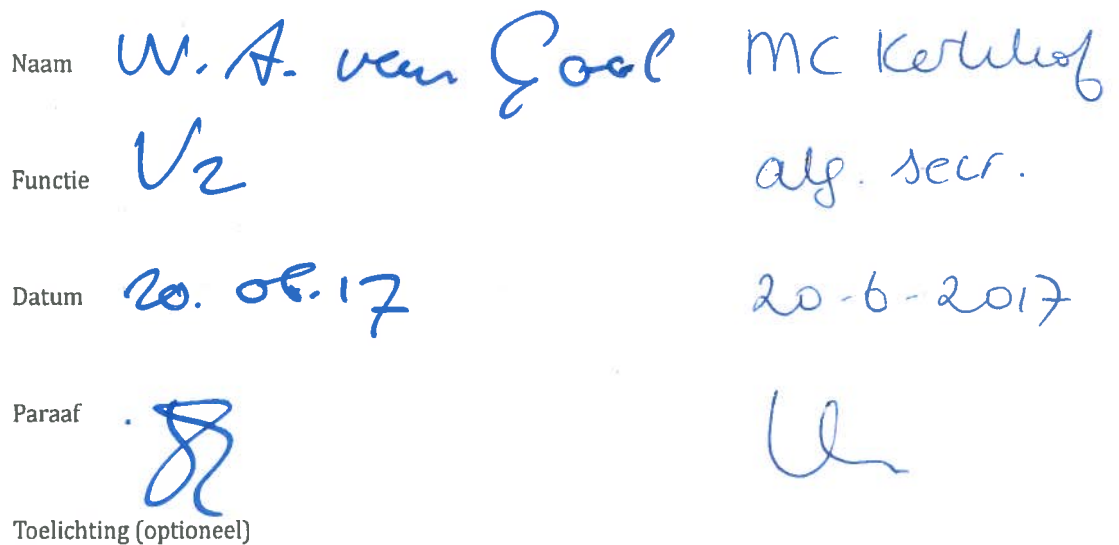 Naam W. A. van Gool MC Kerkhof
Functie Vz alg. secr.
Datum 20. 06. 17 20-6-2017
Paraaf
Toelichting (optioneel)